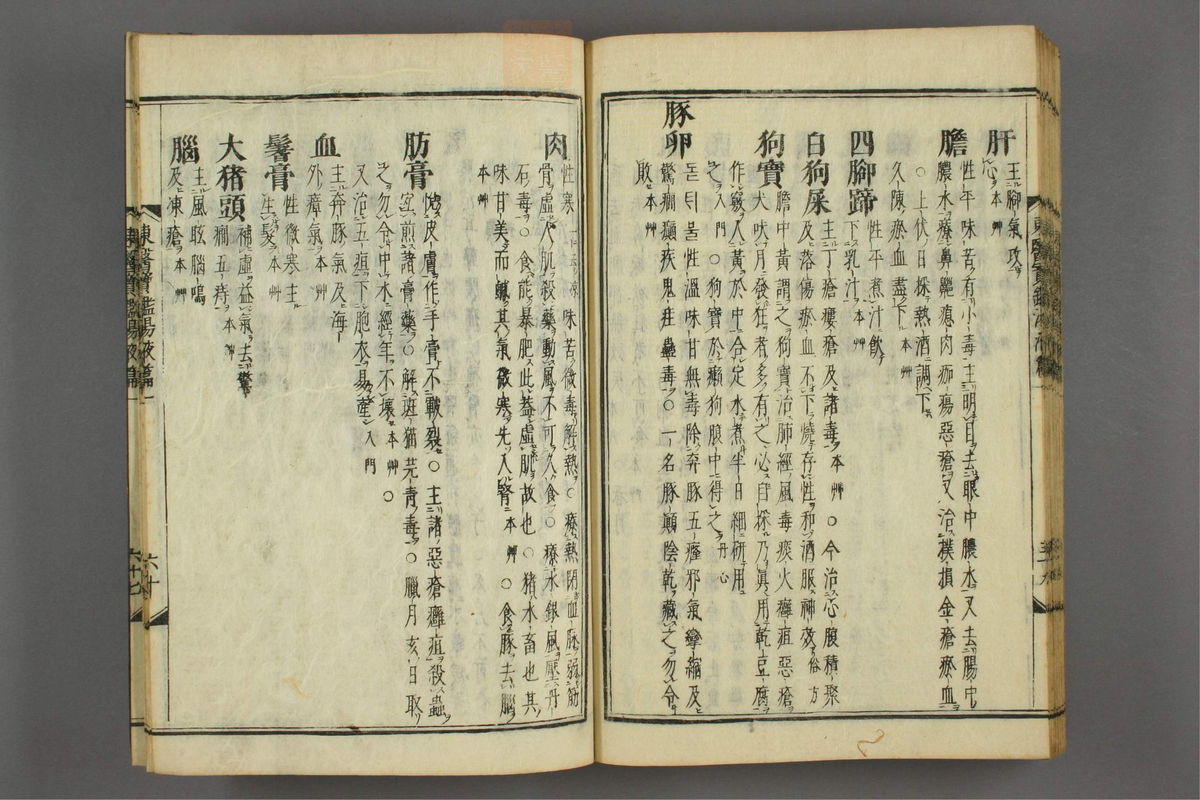 肝
主脚氣攻心本艸
膽
性平味苦有小毒主明目去眼中膿水又去腸中
膿水療鼻齆瘜肉痂瘍惡瘡又治撲損金瘡瘀血
○上伏日採熱酒調下
久陳瘀血盡下本艸
四脚蹄
性平煮汁飲
下乳汁本艸
白狗屎
主丁瘡瘻瘡及諸毒本艸○今治心腹積聚
及落傷瘀血不下燒存性和酒服神效俗方
狗寶
膽中黃謂之狗寶治肺經風毒痰火癰疽惡瘡
犬吠月發狂者多有之必自採乃眞用乾豆腐
作竅入黃於中合定水煮半日細硏用
之入門○狗寶於癩狗腹中得之丹心
豚卵
돋틱불性溫味甘無毒除奔豚五癃邪氣攣縮及
驚癎癲疾鬼疰蠱毒○一名豚顛陰乾藏之勿令
敗本艸
肉
性寒一云凉味苦微毒解熱○療熱閉血脉弱筋
骨虛人肌殺藥動風不可久食○療水銀風壓丹
石毒○食能暴肥此盖虛肌故也○猪水畜也其
味甘美而鹹其氣微寒先入腎本艸○食豚去腦
本艸
肪膏
悅皮膚作手膏不皸裂○主諸惡瘡癰疽殺蟲
宜煎諸膏藥○解斑猫芫靑毒○臘月亥日取
之勿令中水經年不壞本艸○
又治五疸下胞衣易産入門
血
主奔豚氣及海
外瘴氣本艸
鬐膏
性微寒主
生髮本艸
大猪頭
補虛益氣去驚
癎五痔本艸
腦
主風眩腦鳴
及凍瘡本艸
東醫寶鑑湯液篇一
六十七